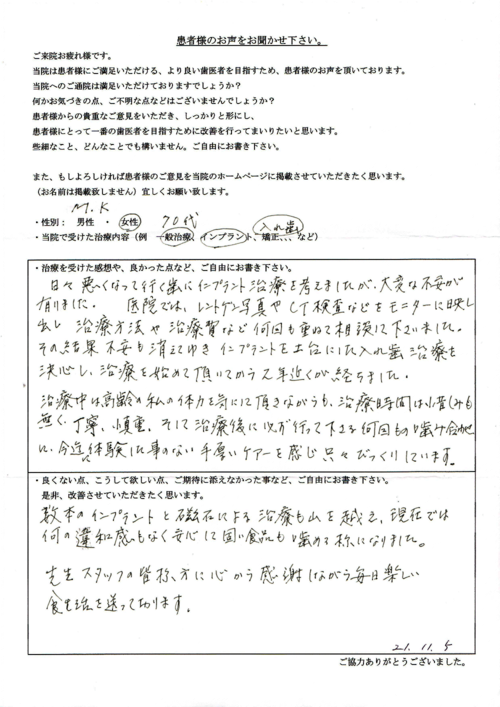 患者様のお声をお聞かせ下さい。
ご来院お疲れ様です。
当院は患者様にご満足いただける、より良い歯医者を目指すため、患者様のお声を頂いております。
当院へのご通院は満足いただけておりますでしょうか？
何かお気づきの点、ご不明な点などはございませんでしょうか？
患者様からの貴重なご意見をいただき、しっかりと形にし、
患者様にとって一番の歯医者を目指すために改善を行ってまいりたいと思います。
些細なこと、どんなことでも構いません。ご自由にお書き下さい。
また、もしよろしければ患者様のご意見を当院のホームページに掲載させていただきたく思います。
（お名前は掲載致しません）宜しくお願い致します。
M.K
・性別： 男性 ・ 女性 70代
入れ歯
・当院で受けた治療内容（例 一般治療、インプラント、矯正、、、など）
・治療を受けた感想や、良かった点など、ご自由にお書き下さい。
日々悪くなって行く歯にインプラント治療を考えましたが、大変な不安が
有りました。 医院では、レントゲン写真やCT検査などをモニターに映し
出し 治療方法や治療費など何回も重ねて相談して下さいました。
その結果不安も消えてゆき インプラントを土台にした入れ歯治療を
決心し、治療を始めて頂いてから2年近くが経ちました。
治療中は高齢の私の体力を気にして頂きながらも、治療時間は小昔しみも
無く、丁寧、慎重、そして治療後に必ず行って下さる何回もの噛み合わせ
に、今迄に体験した事のない手厚いケアーを感じ只々びっくりしています。
・良くない点、こうして欲しい点、ご期待に添えなかった事など、ご自由にお書き下さい。
是非、改善させていただきたく思います。
数本のインプラントと磁石による治療も山を越え、現在では
何の違和感もなく安心して固い食品も噛める様になりました。
先生スタッフの皆様方に心から感謝しながら毎日楽しい
食生活を送って居ります。
21. 11. 5
ご協力ありがとうございました。